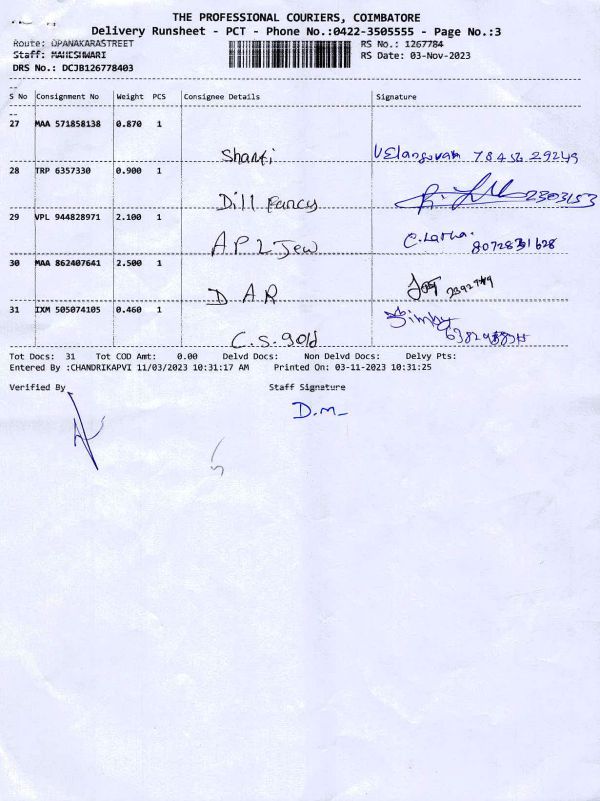 THE PROFESSIONAL COURIERS, COIMBATORE
Delivery Runsheet - PCT - Phone No.:0422-3505555 - Page No.:3
Route: OPANAKARASTREET RS No.: 1267784
Staff: MAHESHWARI RS Date: 03-Nov-2023
DRS No.: DCJB126778403
S No Consignment No Weight PCS Consignee Details Signature
27 MAA 571858138 0.870 1
Shanti Velanguvan 78452 29249
28 TRP 6357330 0.900 1
Dill Fancy 2303153
29 VPL 944828971 2.100 1
A.P.L Jew C. Latha.
30 MAA 862407641 2.500 1
D.A.R
31 IXM 505074105 0.460 1
C.S. gold Simby
Tot Docs: 31 Tot COD Amt: 0.00 Delvd Docs: Non Delvd Docs: Delvy Pts:
Entered By :CHANDRIKAPVI 11/03/2023 10:31:17 AM Printed On: 03-11-2023 10:31:25
Verified By Staff Signature
D.M-